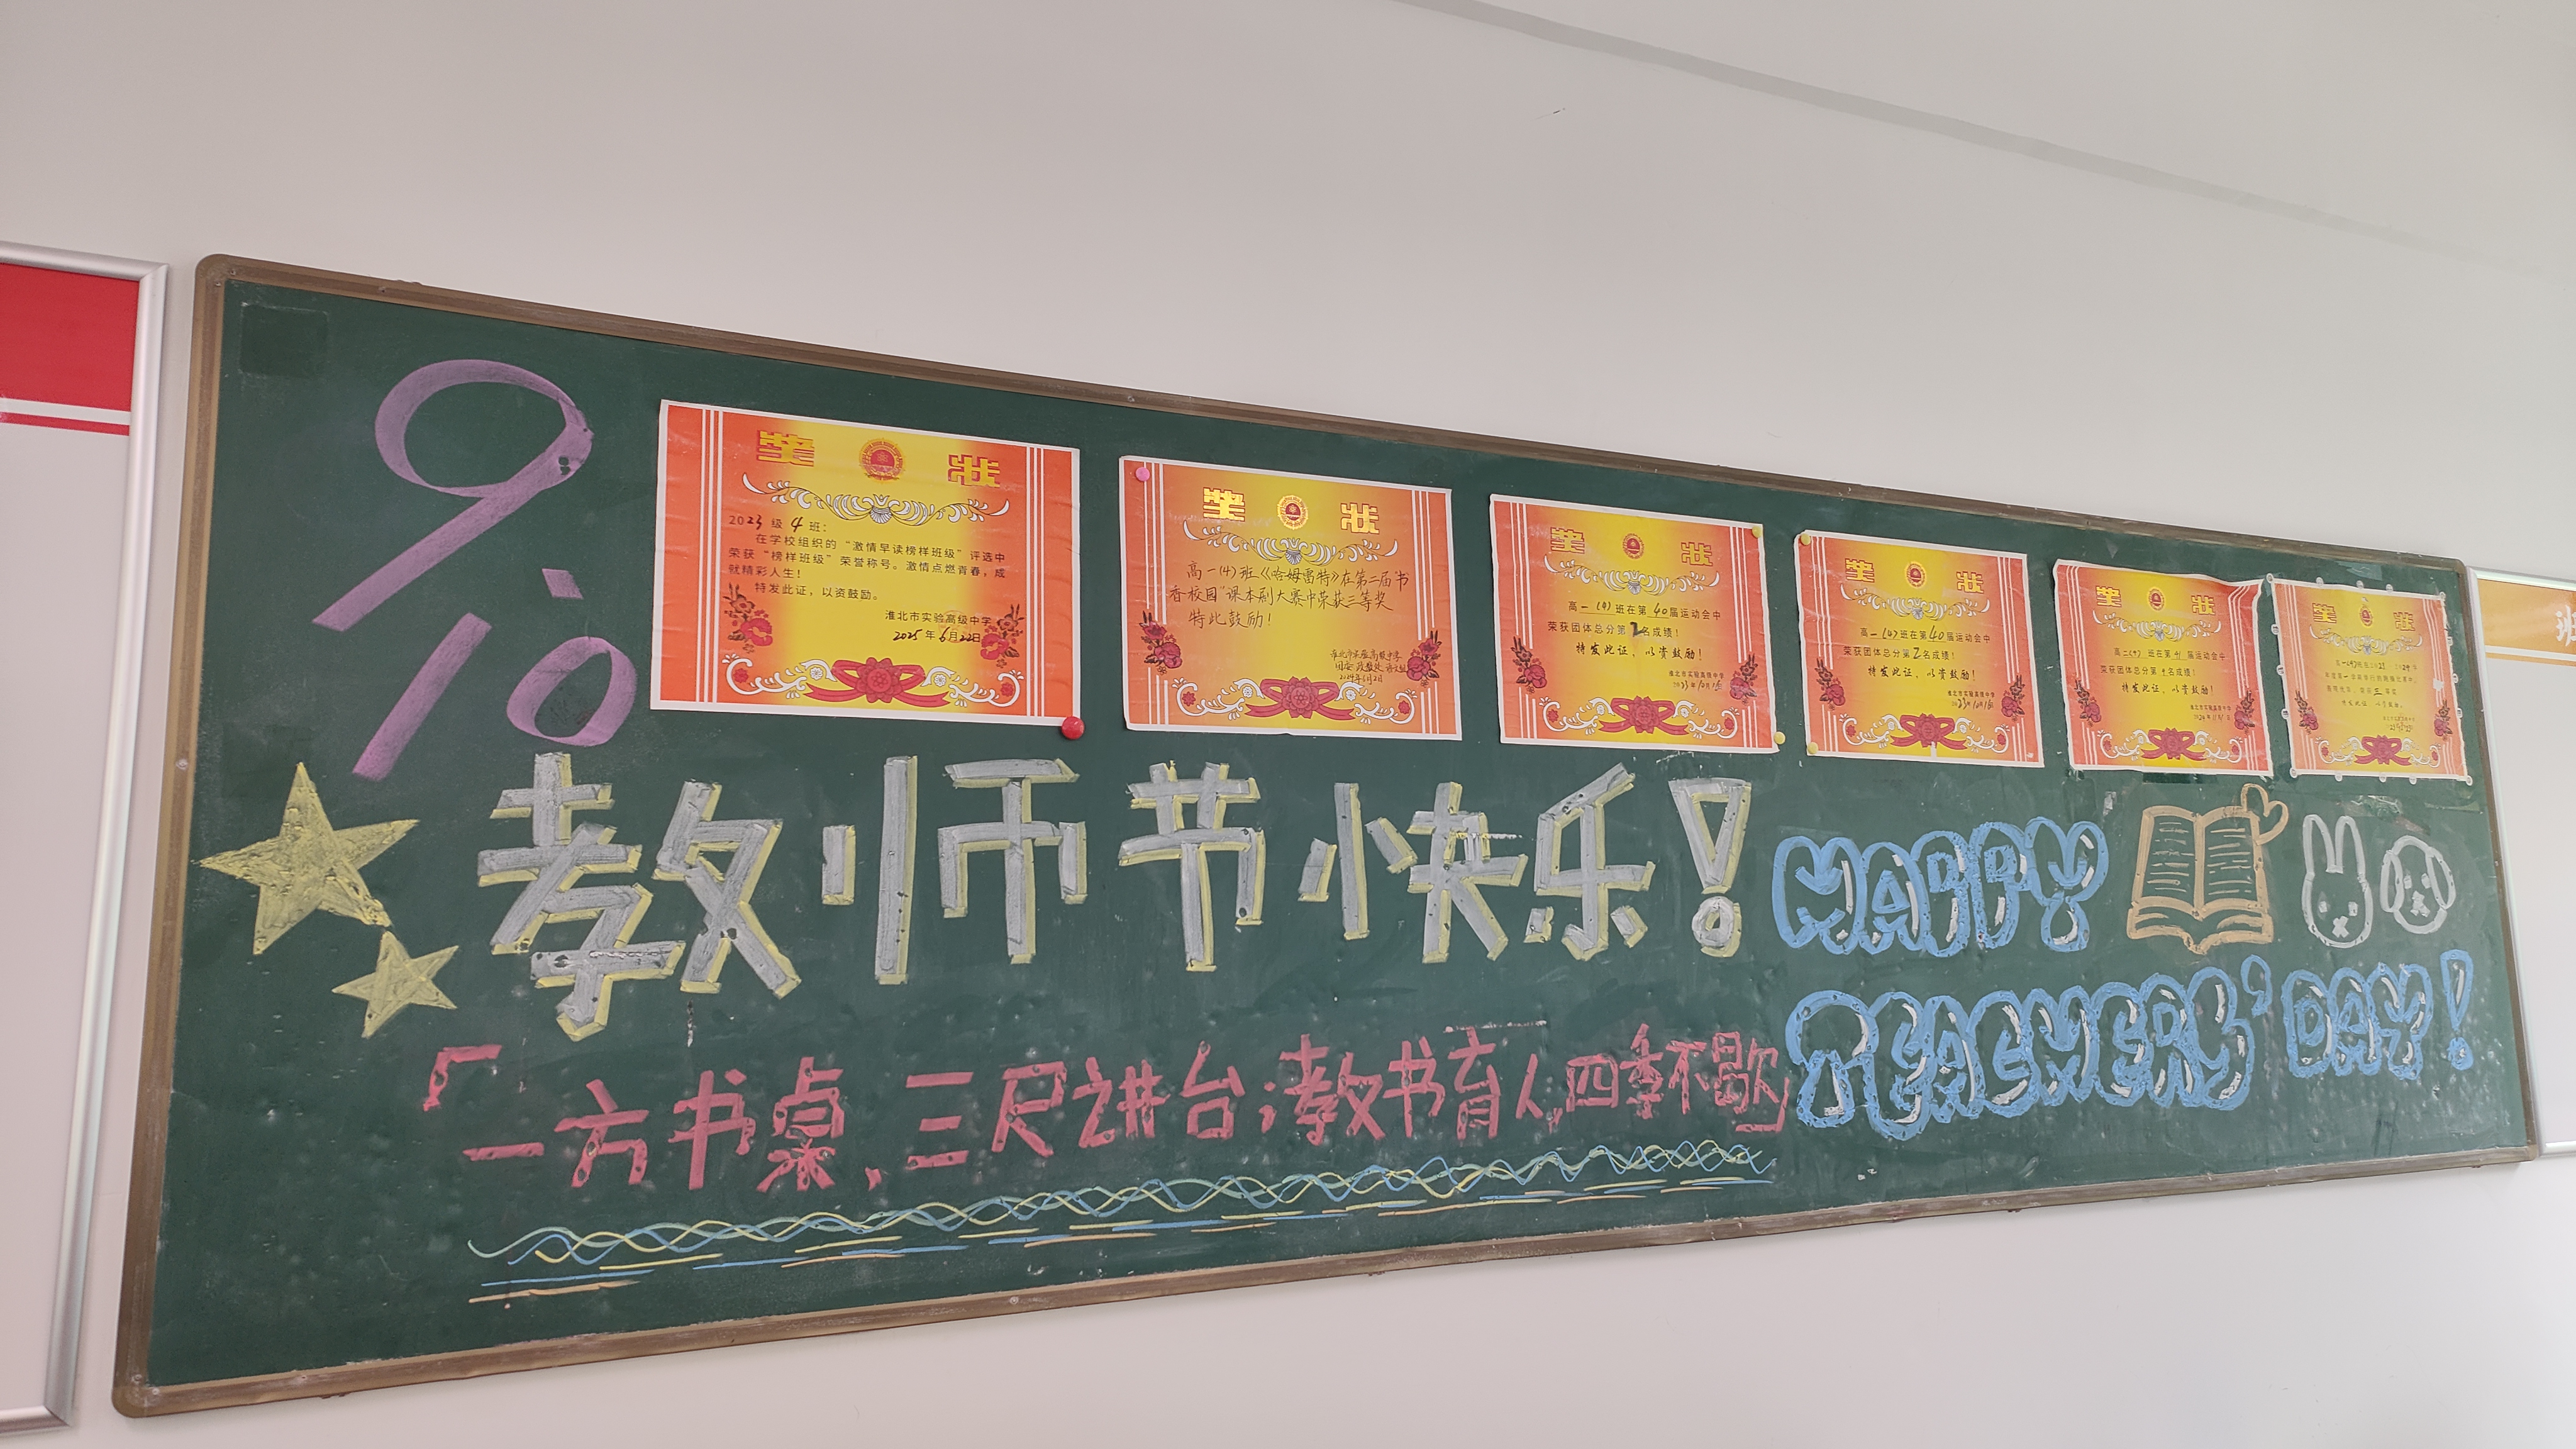 9.10
奖状
2023级4班:
在学校组织的“激情早读榜样班级”评选中
荣获“榜样班级”荣誉称号。激情点燃青春，成
就精彩人生！
特发此证，以资鼓励。
淮北市实验高级中学
2025年6月22日
奖状
高一(4)班《哈姆雷特》在第二届“书
香校园”课本剧大赛中荣获三等奖
特此鼓励！
淮北市实验高级中学
2024年6月2日
奖状
高一(4)班在第40届运动会中
荣获团体总分第2名成绩！
特发此证、以资鼓励！
淮北市实验高级中学
奖状
高一(4)班在第40届运动会中
荣获团体总分第2名成绩！
特发此证、以资鼓励！
淮北市实验高级中学
奖状
高二(4)班在第41届运动会中
荣获团体总分第4名成绩！
特发此证、以资鼓励！
淮北市实验高级中学
奖状
特发此证，以资鼓励。
教师节快乐！
HAPPY
TEACHERS' DAY!
「一方书桌，三尺讲台；教书育人，四季不歇」
班